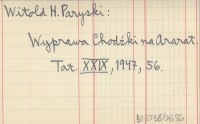 Witold H. Paryski:
Wyprawa Chodźki na Ararat.
Tat. XXIX, 1947, 56.
b) 038/0636